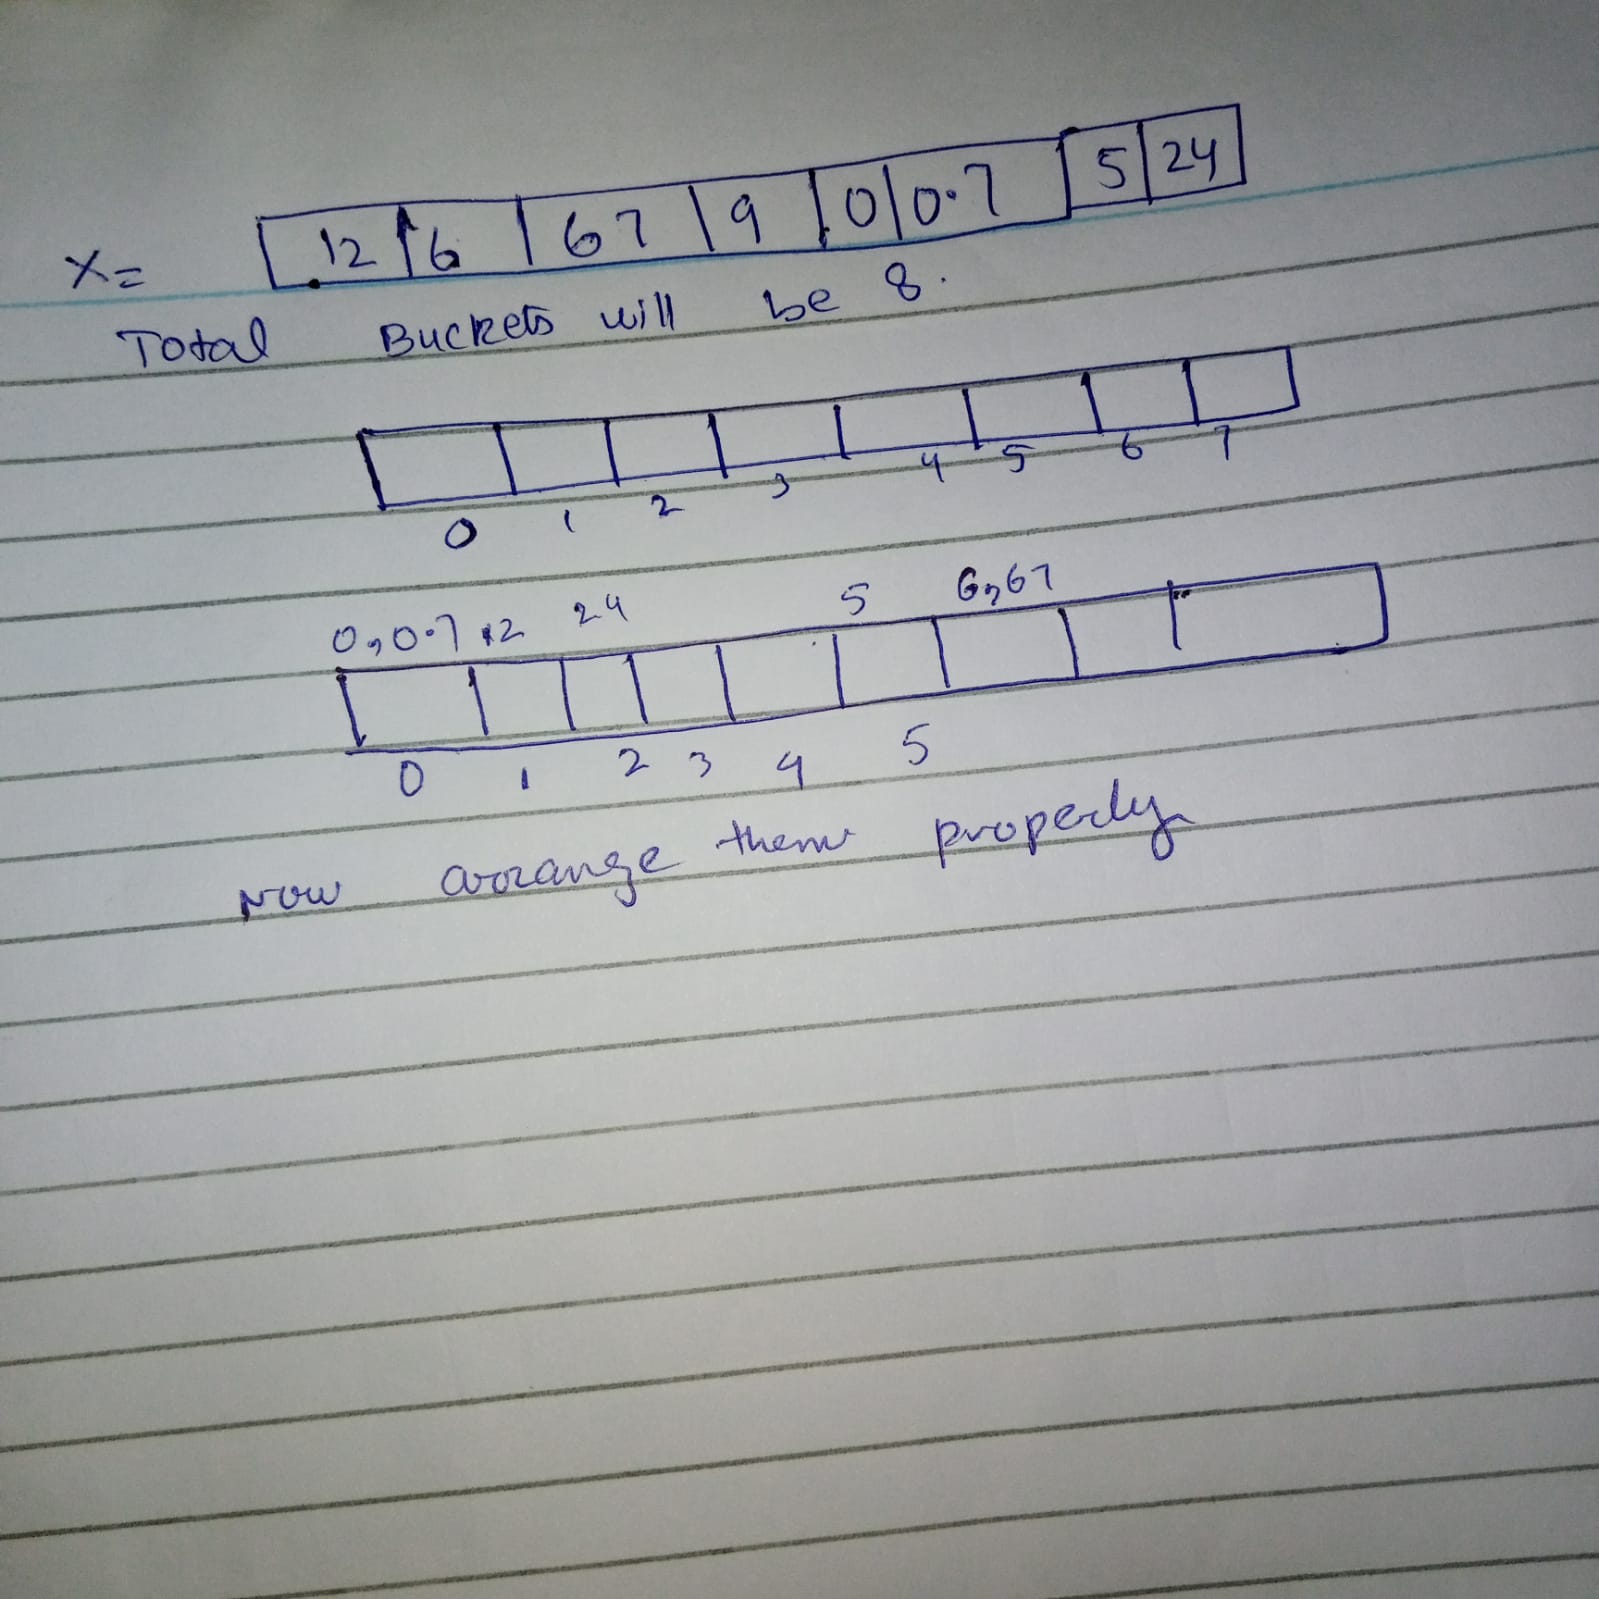 X= 12 6 67 9 0 0.7 5 24
Total Buckets will be 8.
0 1 2 3 4 5 6 7
0,0.7 12 24 5 6,67
0 1 2 3 4 5
Now arrange them properly